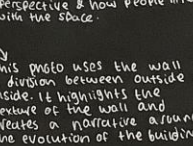 perspective & how people
with the space.
his photo uses the wall
division between outside
side. It highlights the
exture of the wall and
reates a narrative aroun
he evolution of the buildin